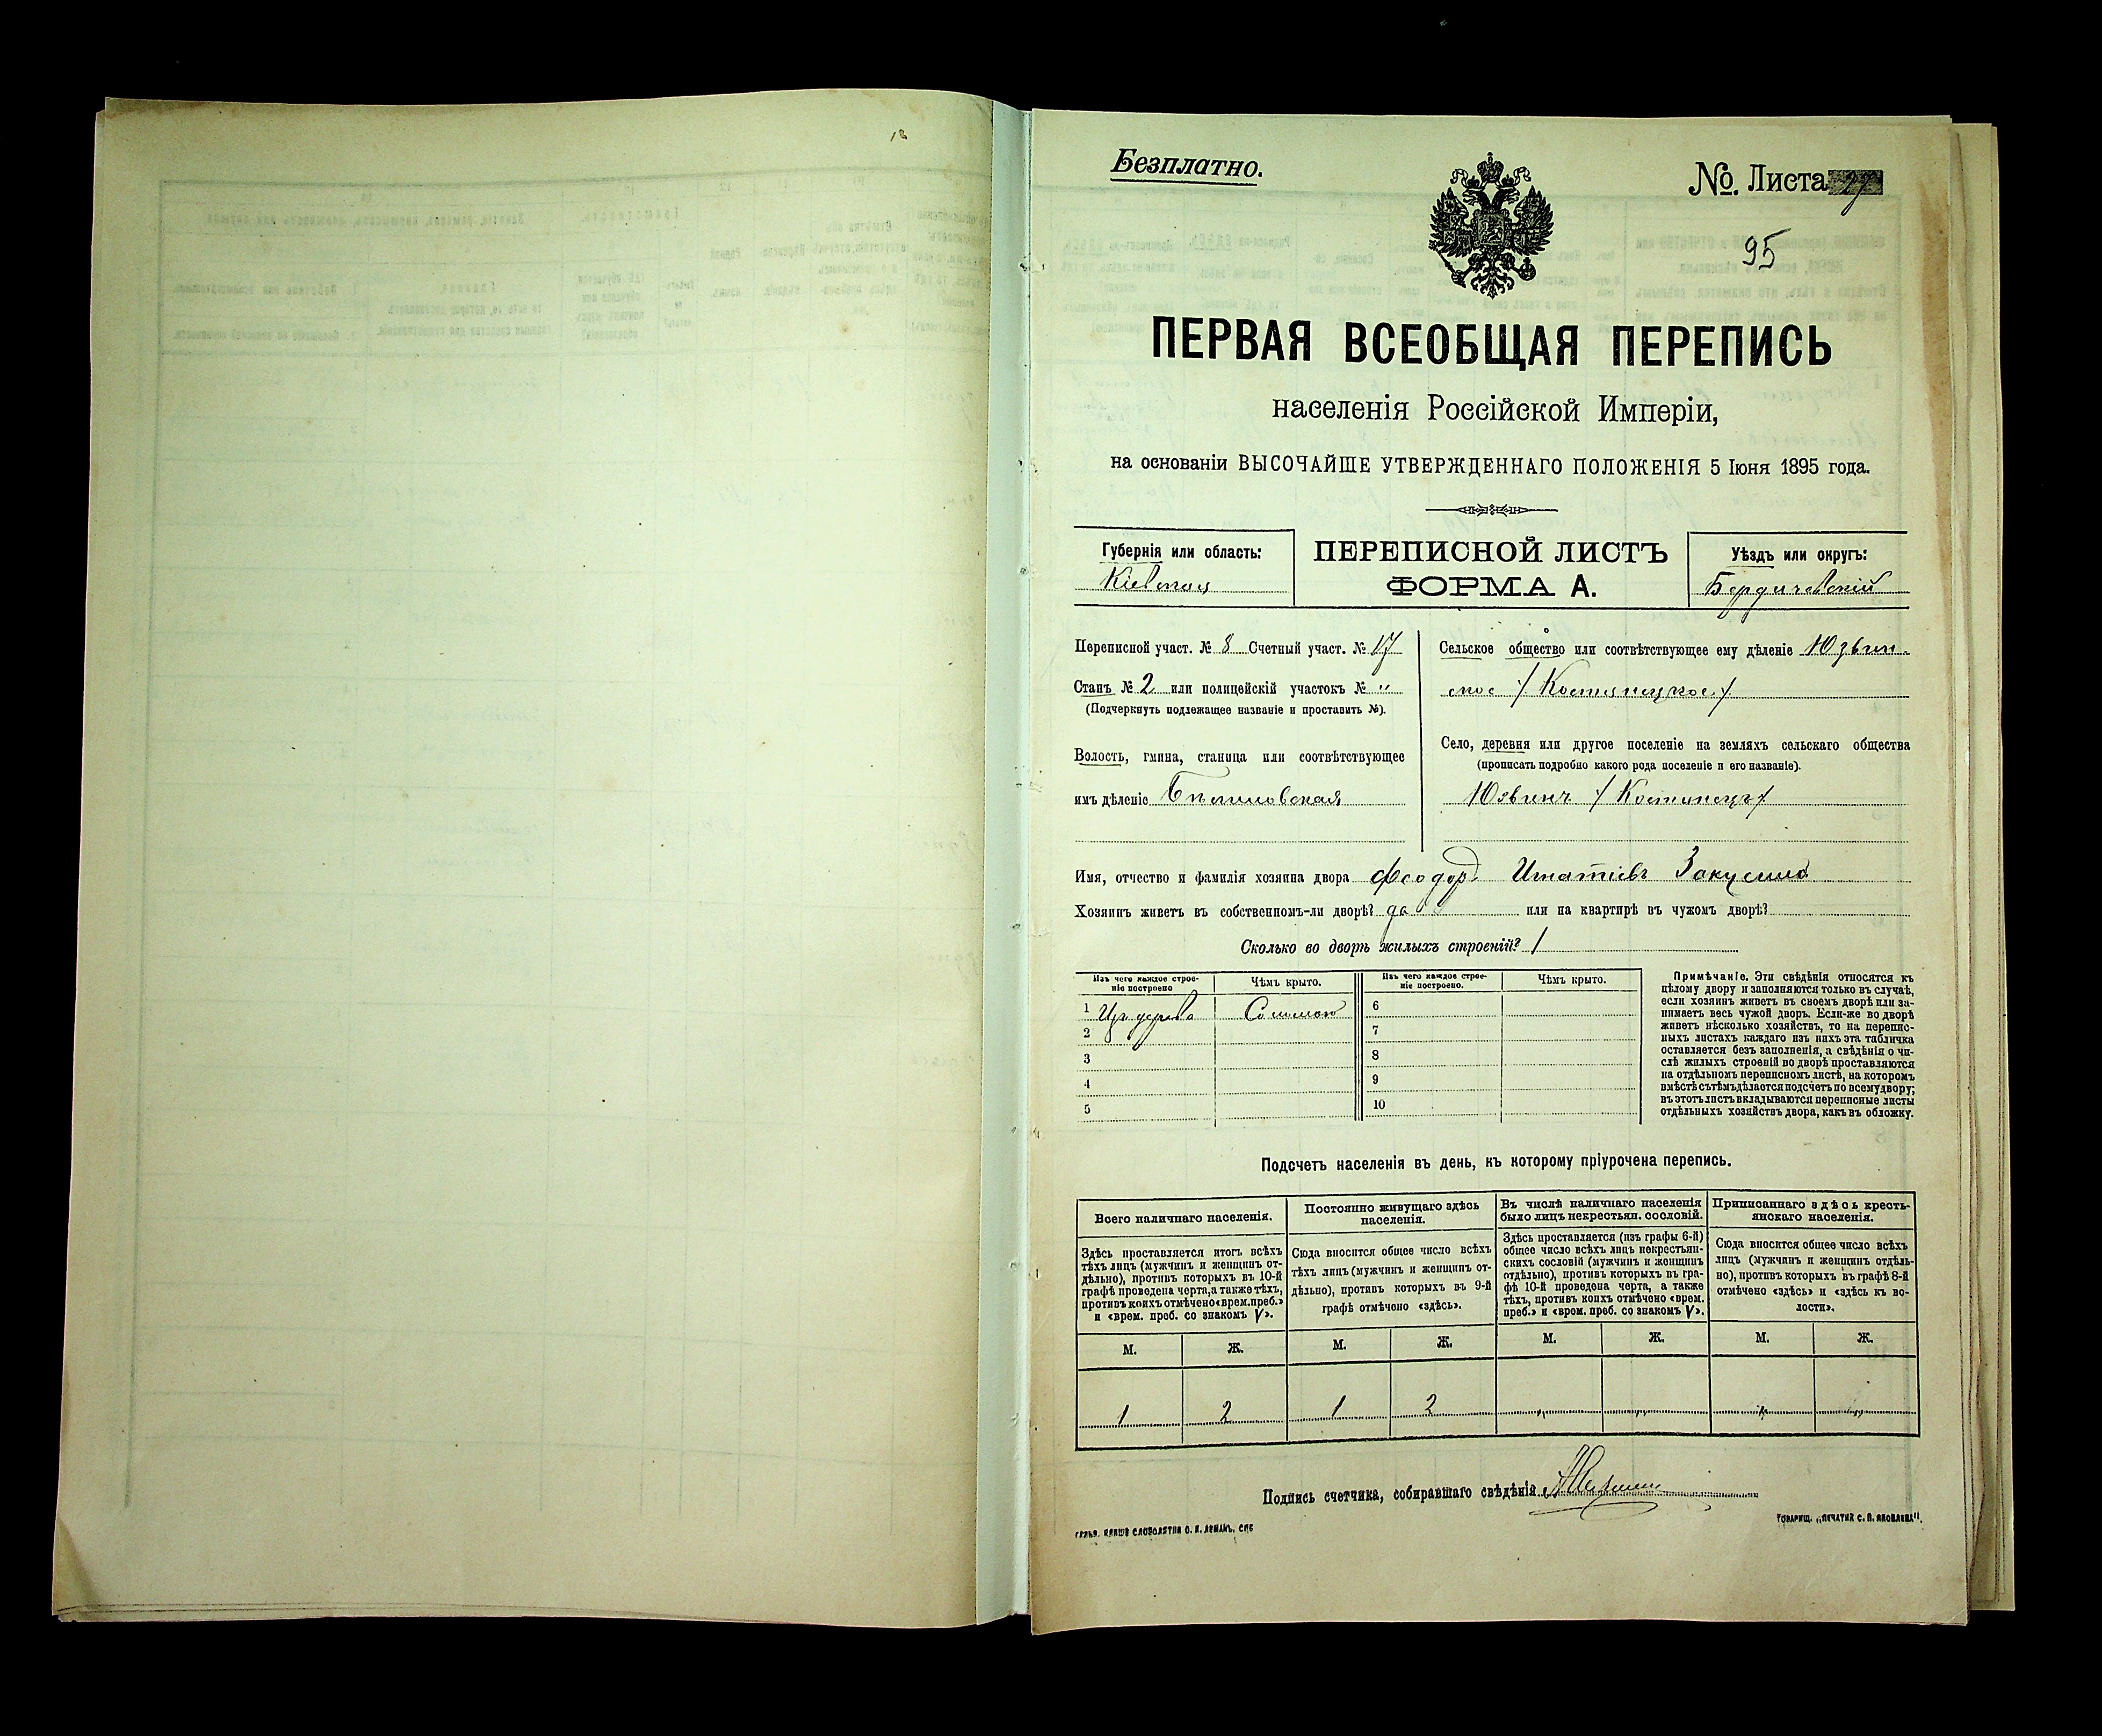 18
Безплатно.
№. Листа 27
95
ПЕРВАЯ ВСЕОБЩАЯ ПЕРЕПИСЬ
населенія Россійской Имперіи,
на основаніи ВЫСОЧАЙШЕ УТВЕРЖДЕННАГО ПОЛОЖЕНІЯ 5 Іюня 1895 года.
Губернія или область:
Кіевская
ПЕРЕПИСНОЙ ЛИСТЪ
ФОРМА А.
Уѣздъ или округъ:
Бердичевскій
Переписной участ. № 8 Счетный участ. № 17
Станъ № 2 или полицейскій участокъ № "
(Подчеркнуть подлежащее названіе и проставить №).
Волость, гмина, станица или соотвѣтствующее
имъ дѣленіе Бѣлиловская
Сельское общество или соотвѣтствующее ему дѣленіе Юзвин-
ское /Костинецкое/
Село, деревня или другое поселеніе на земляхъ сельскаго общества
(прописать подробно какого рода поселеніе и его названіе).
Юзвинъ /Костинецъ/
Имя, отчество и фамилія хозяина двора Феодор Игнатіевъ Закусило
Хозяинъ живетъ въ собственномъ-ли дворѣ? да или на квартирѣ въ чужомъ дворѣ?
Сколько во дворѣ жилыхъ строеній? 1
Изъ чего каждое строе-
ніе построено
Чѣмъ крыто.
Изъ чего каждое строе-
ніе построено.
Чѣмъ крыто.
1 Изъ дерева Соломою 6
2 7
3 8
4 9
5 10
Примѣчаніе. Эти свѣдѣнія относятся къ
цѣлому двору и заполняются только въ случаѣ,
если хозяинъ живетъ въ своемъ дворѣ или за-
нимаетъ весь чужой дворъ. Если-же во дворѣ
живетъ нѣсколько хозяйствъ, то на перепис-
ныхъ листахъ каждаго изъ нихъ эта табличка
оставляется безъ заполненія, а свѣдѣнія о чи-
слѣ жилыхъ строеній во дворѣ проставляются
на отдѣльномъ переписномъ листѣ, на которомъ
вмѣстѣ съ тѣмъ дѣлается подсчетъ по всему двору;
въ этотъ листъ вкладываются переписные листы
отдѣльныхъ хозяйствъ двора, какъ въ обложку.
Подсчетъ населенія въ день, къ которому пріурочена перепись.
Всего наличнаго населенія.
Здѣсь проставляется итогъ всѣхъ
тѣхъ лицъ (мужчинъ и женщинъ от-
дѣльно), противъ которыхъ въ 10-й
графѣ проведена черта, а также тѣхъ,
противъ коихъ отмѣчено «врем. преб.»
и «врем. преб. со знакомъ V».
Постоянно живущаго здѣсь
населенія.
Сюда вносится общее число всѣхъ
тѣхъ лицъ (мужчинъ и женщинъ от-
дѣльно), противъ которыхъ въ 9-й
графѣ отмѣчено «здѣсь».
Въ числѣ наличнаго населенія
было лицъ некрестьян. сословій.
Здѣсь проставляется (изъ графы 6-й)
общее число всѣхъ лицъ некрестьян-
скихъ сословій (мужчинъ и женщинъ
отдѣльно), противъ которыхъ въ гра-
фѣ 10-й проведена черта, а также
тѣхъ, противъ коихъ отмѣчено «врем.
преб.» и «врем. преб. со знакомъ V».
Приписаннаго здѣсь кресть-
янскаго населенія.
Сюда вносится общее число всѣхъ
лицъ (мужчинъ и женщинъ отдѣль-
но), противъ которыхъ въ графѣ 8-й
отмѣчено «здѣсь» и «здѣсь къ во-
лости».
М. Ж. М. Ж. М. Ж. М. Ж.
1 2 1 2 " " " "
Подпись счетчика, собиравшаго свѣдѣнія
ГАЛЬВ. КЛИШЕ СЛОВОЛИТНИ О. И. ЛЕМАНЪ, СПБ
ТОВАРИЩ. „ПЕЧАТНЯ С. П. ЯКОВЛЕВА".